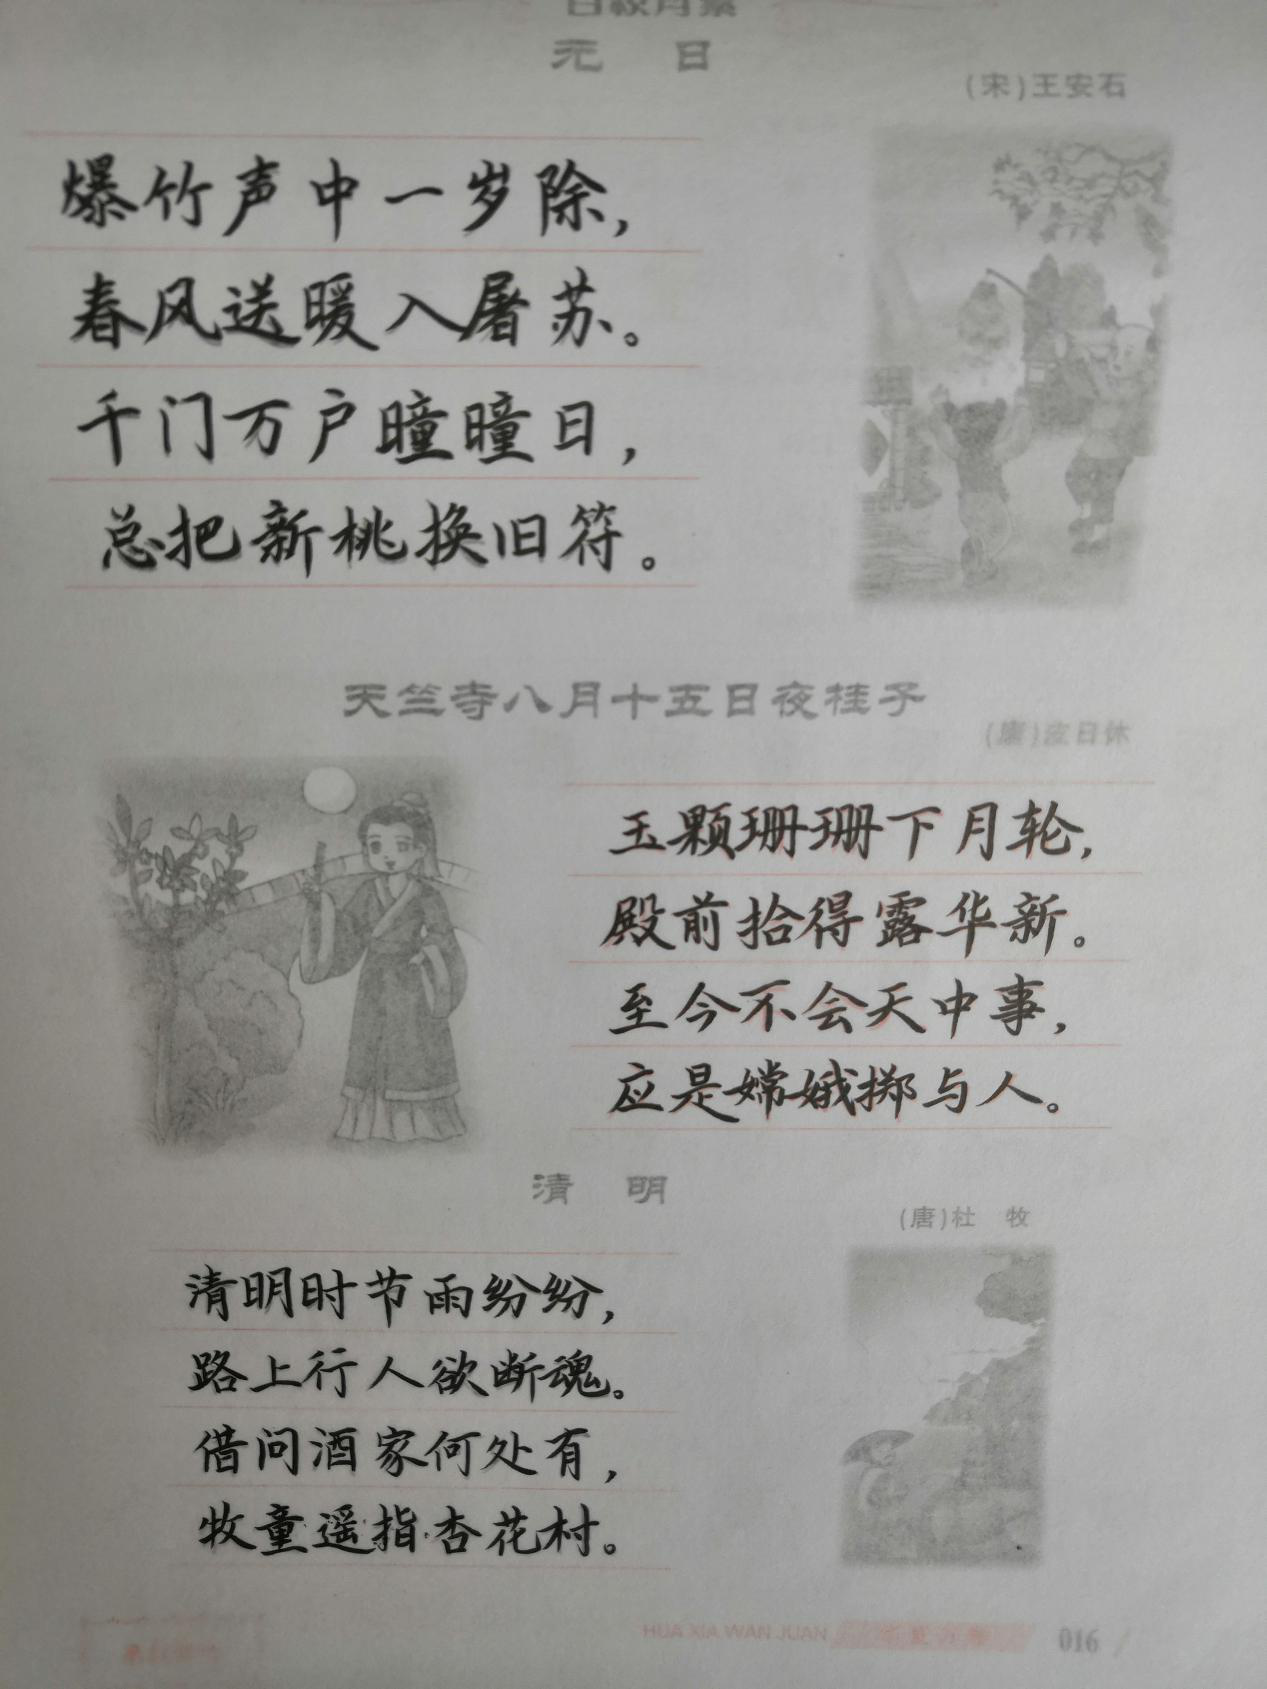 元 日
(宋)王安石
爆竹声中一岁除,
春风送暖入屠苏。
千门万户曈曈日,
总把新桃换旧符。
天竺寺八月十五日夜桂子
(唐)皮日休
玉颗珊珊下月轮,
殿前拾得露华新。
至今不会天中事,
应是嫦娥掷与人。
清 明
(唐)杜 牧
清明时节雨纷纷,
路上行人欲断魂。
借问酒家何处有,
牧童遥指杏花村。
HUA XIA WAN JUAN 华夏万卷 016